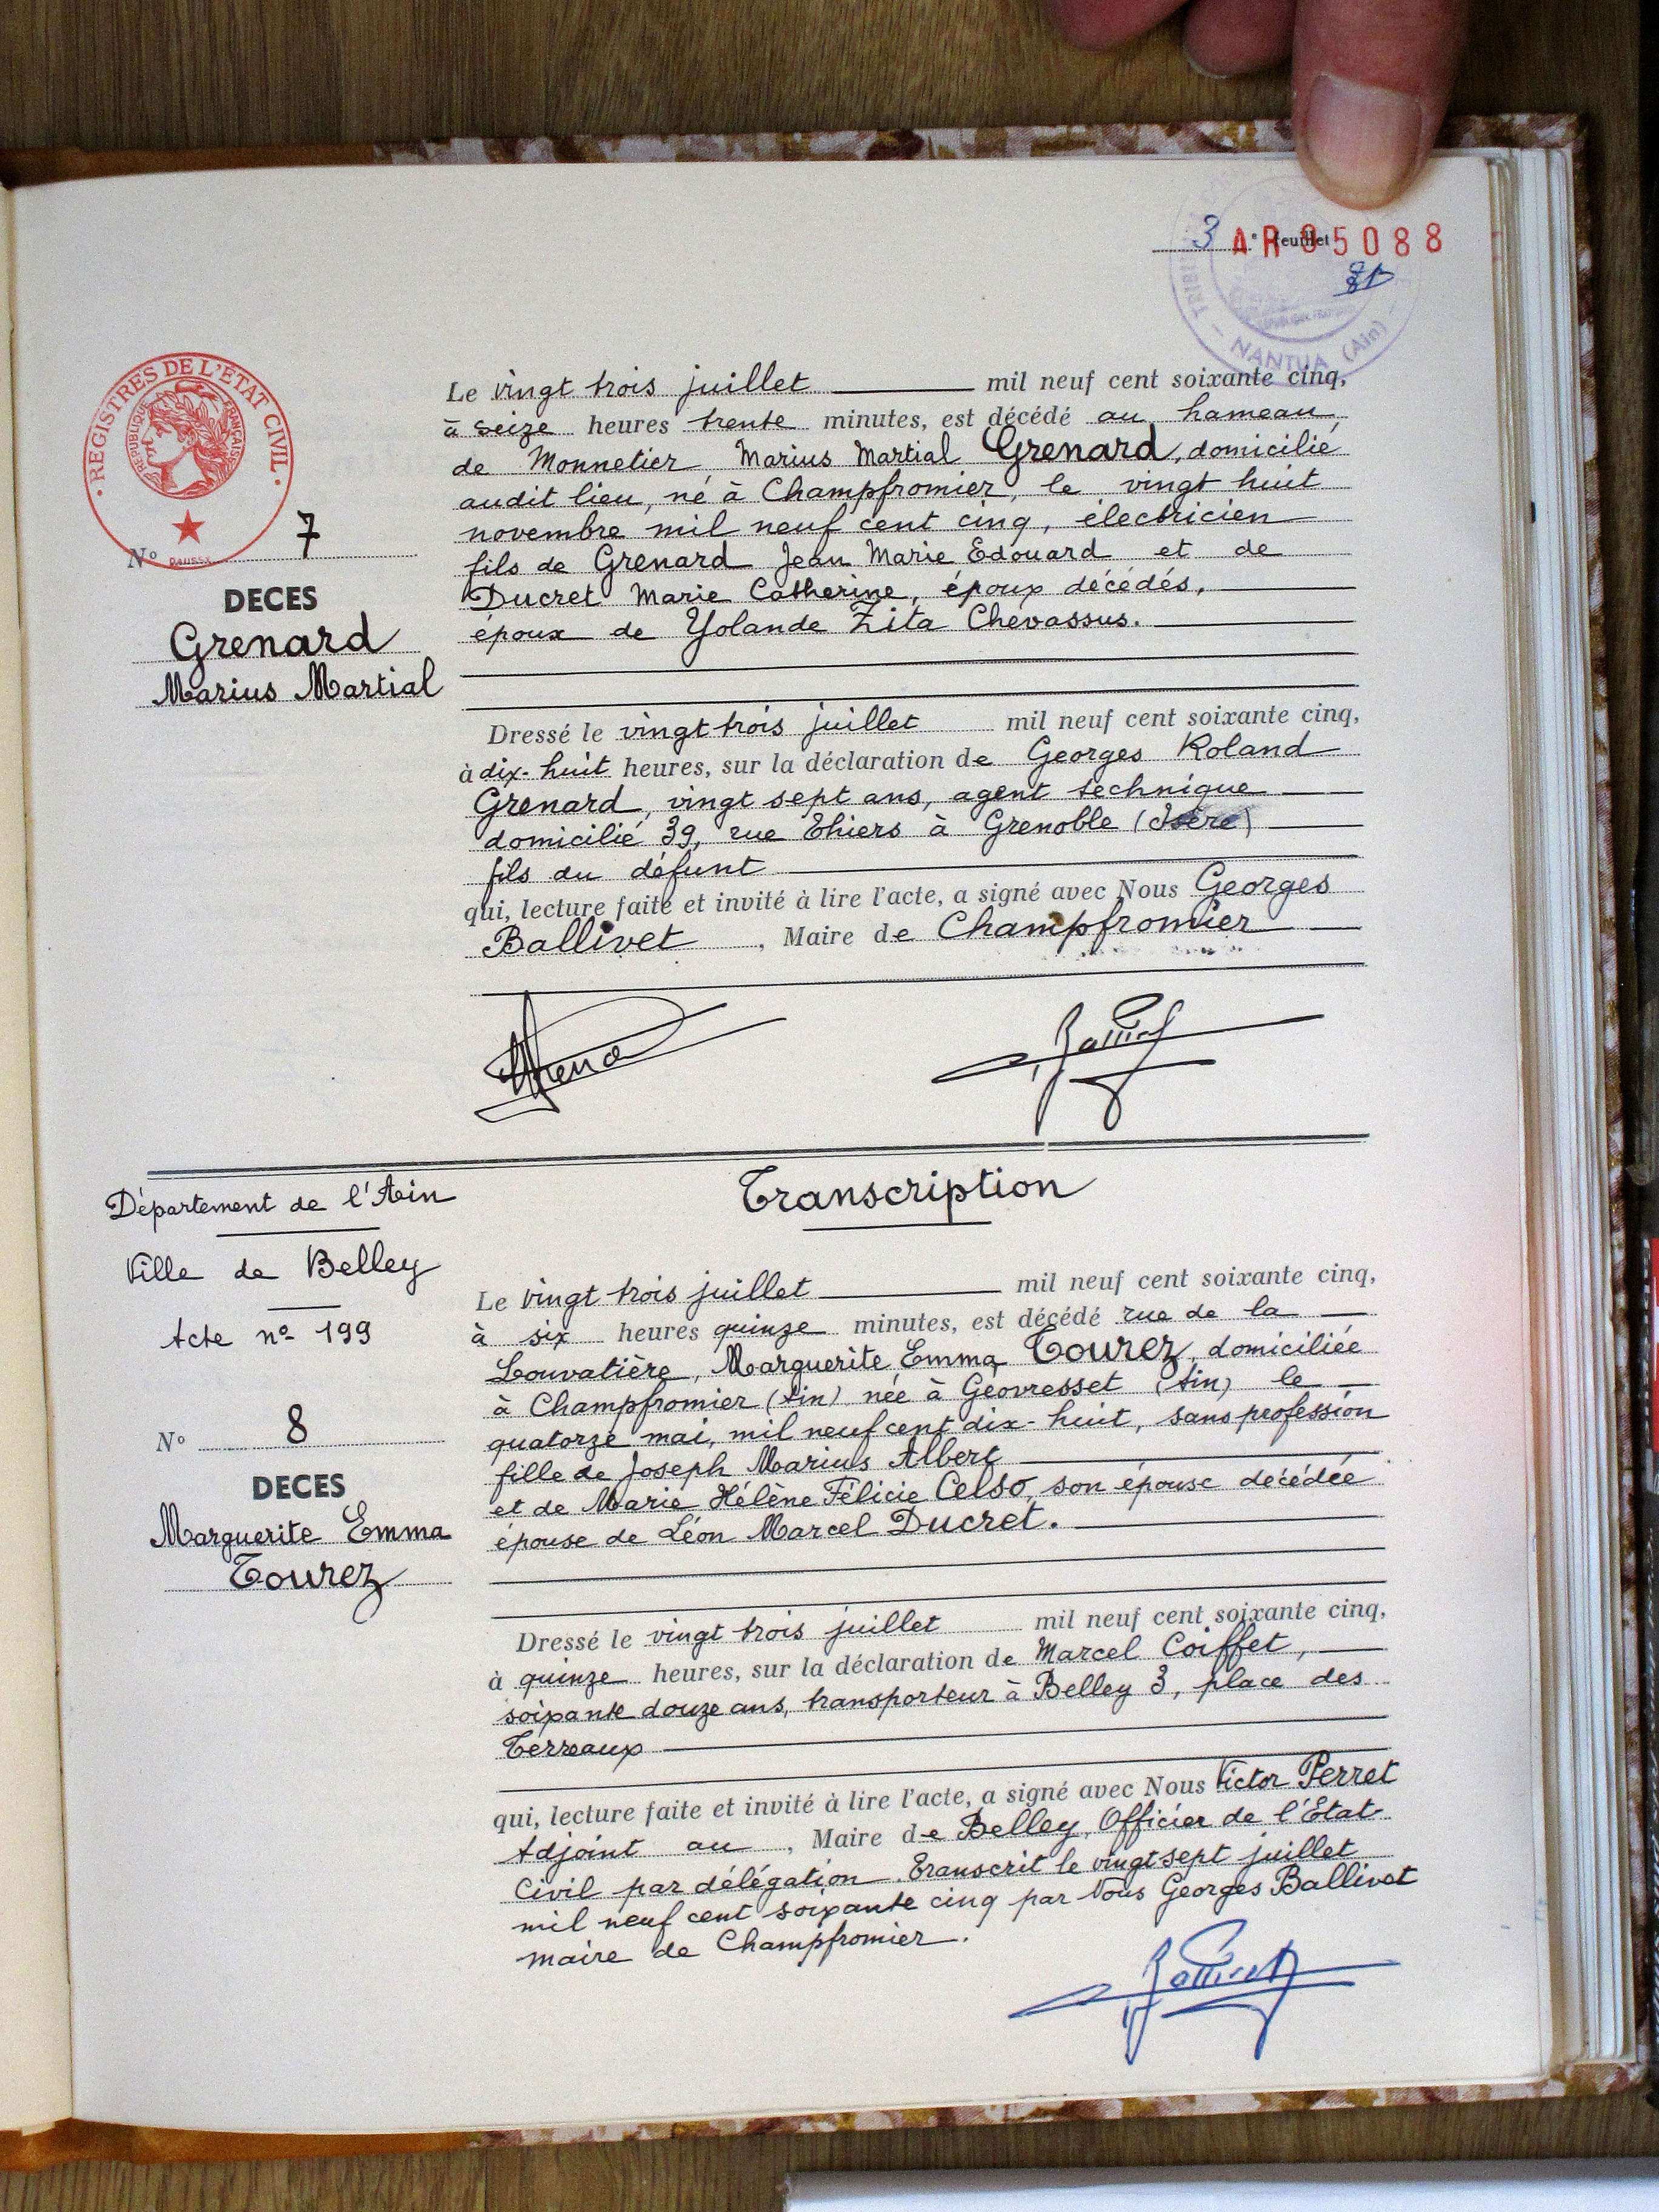 3 e feuillet
AR 95088
NANTUA (Ain)
REGISTRES DE L'ETAT CIVIL
REPUBLIQUE FRANCAISE
N° 7
DECES
Grenard
Marius Martial
Le vingt trois juillet mil neuf cent soixante cinq,
à seize heures trente minutes, est décédé au hameau
de Monnetier Marius Martial Grenard, domicilié
audit lieu, né à Champfromier, le vingt huit
novembre mil neuf cent cinq, électricien
fils de Grenard Jean Marie Edouard et de
Ducret Marie Catherine, époux décédés,
époux de Yolande Zita Chevassus.
Dressé le vingt trois juillet mil neuf cent soixante cinq,
à dix-huit heures, sur la déclaration de Georges Roland
Grenard, vingt sept ans, agent technique
domicilié 39, rue Thiers à Grenoble (Isère)
fils du défunt
qui, lecture faite et invité à lire l'acte, a signé avec Nous Georges
Ballivet, Maire de Champfromier
Transcription
Département de l'Ain
Ville de Belley
Acte n° 199
N° 8
DECES
Marguerite Emma
Tourez
Le vingt trois juillet mil neuf cent soixante cinq,
à six heures quinze minutes, est décédé rue de la
Louvatière, Marguerite Emma Tourez, domiciliée
à Champfromier (Ain) née à Géovresset (Ain) le
quatorze mai, mil neuf cent dix-huit, sans profession
fille de Joseph Marius Albert
et de Marie Hélène Félicie Celso, son épouse décédée
épouse de Léon Marcel Ducret.
Dressé le vingt trois juillet mil neuf cent soixante cinq,
à quinze heures, sur la déclaration de Marcel Coiffet,
soixante douze ans, transporteur à Belley 3, place des
Terreaux
qui, lecture faite et invité à lire l'acte, a signé avec Nous Victor Perret
Adjoint au, Maire de Belley, Officier de l'Etat
Civil par délégation. Transcrit le vingt sept juillet
mil neuf cent soixante cinq par Nous Georges Ballivet
maire de Champfromier.